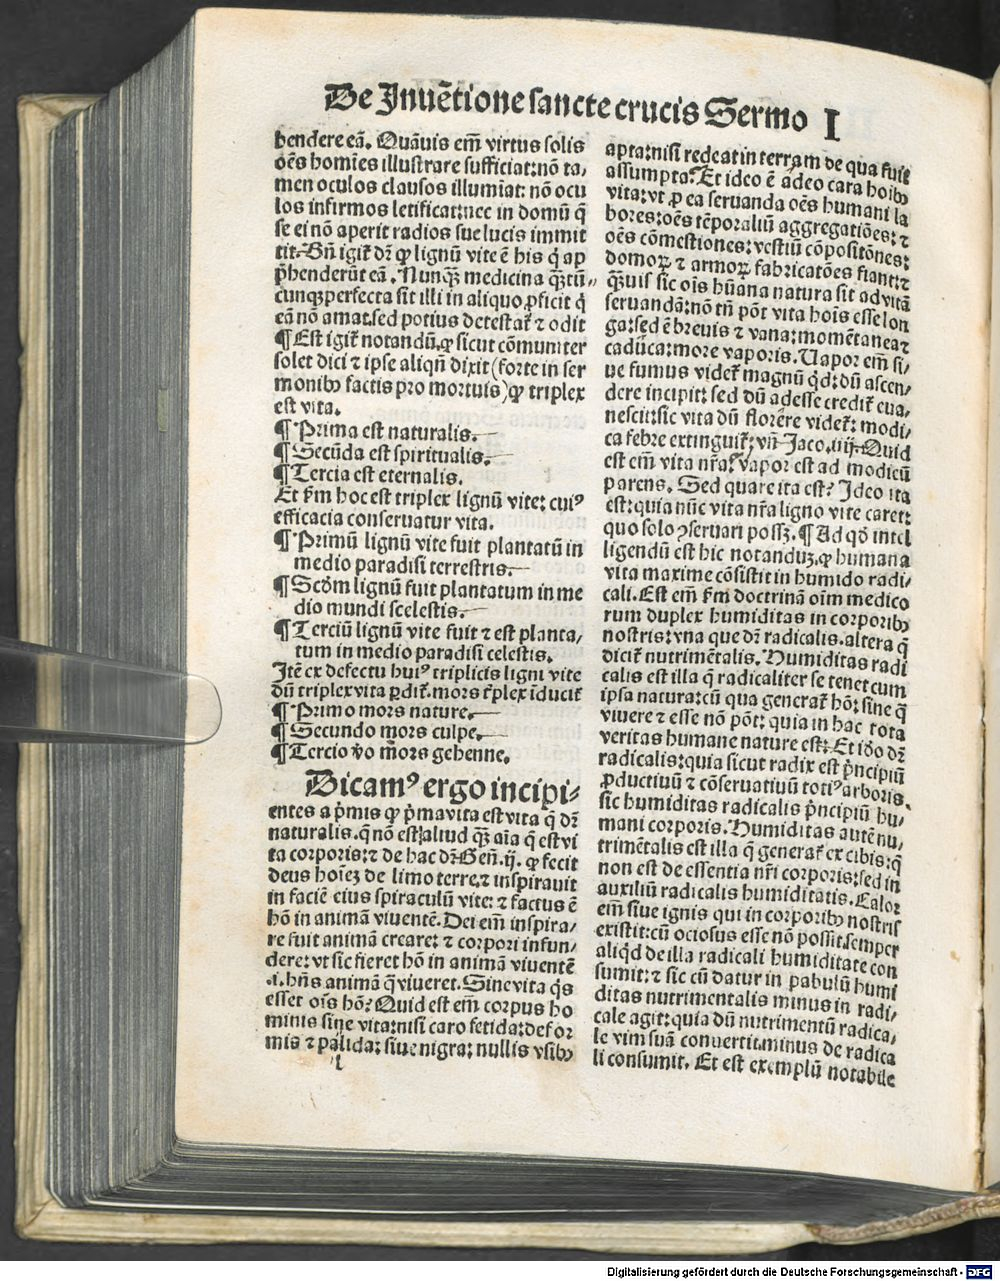 De Inuētione sancte crucis Sermo I
hendere eā. Quāuis em̄ virtus solis
oēs homīes illustrare sufficiat: nō ta/
men oculos clausos illumīat: nō ocu
los infirmos letificat: nec in domū q̄
se ei nō aperit radios sue lucis immit
tit. Sn̄ igit̄ dr̄ ꝙ lignū vite ē his q̄ ap
p̄henderūt eā. Nunqꝫ medicina qꝫtū/
cunqꝫ perfecta sit illi in aliquo ꝓficit q̇
eā nō amat. sed potius detestat̄ ⁊ odit
¶ Est igit̄ notandū. ꝙ sicut cōmuniter
solet dici ⁊ ipse aliqn̄ dixit (forte in ser
monibꝰ factis pro mortuis) ꝙ triplex
est vita.
¶ Prima est naturalis.
¶ Secūda est spiritualis.
¶ Tercia est eternalis.
Et ẜm hoc est triplex lignū vite: cuiꝰ
efficacia conseruatur vita.
¶ Primū lignū vite fuit plantatū in
medio paradisi terrestris.
¶ Scd̄m lignū fuit plantatum in me
dio mundi scelestis.
¶ Terciū lignū vite fuit ⁊ est planta/
tum in medio paradisi celestis.
Itē ex defectu huiꝰ triplicis ligni vite
dū triplex vita ꝑdit̄. mors t̄plex īducit̄
¶ Primo mors nature.
¶ Secundo mors culpe.
¶ Tercio v̄o mors gehenne.
Dicamꝰ ergo incipi/
entes a p̄mis ꝙ p̄ma vita est vita q̄ dr̄
naturalis. q̄ nō est aliud qꝫ aīa q̄ est vi
ta corporis: ⁊ de hac dr̄ Gen̄. ij. ꝙ fecit
deus hoīeꝫ de limo terre. ⁊ inspirauit
in faciē eius spiraculū vite: ⁊ factus ē
hō in animā viuentē. Dei em̄ inspira/
re fuit animā creare: ⁊ corpori infun/
dere: vt sic fieret hō in animā viuentē
.i. hn̄s animā q̄ viueret. Sine vita q̇s
esset oīs hō? Quid est em̄ corpus ho
minis sine vita: nisi caro fetida: defor
mis ⁊ palida: siue nigra: nullis vsibꝰ
l
apta: nisi redeat in terram de qua fuit
assumpta. Et ideo ē adeo cara hoībꝰ
vita: vt ꝓ ea seruanda oēs humani la
bores: oēs tēporaliū aggregatiōes: ⁊
oēs cōmestiones: vestiū cōpositōnes:
domoꝝ ⁊ armoꝝ fabricatōes fiant: ⁊
qꝫuis sic oīs hūana natura sit ad vitā
seruandā: nō tn̄ pōt vita hoīs esse lon
ga: sed ē breuis ⁊ vana: momētanea ⁊
cadūca: more vaporis. Uapor em̄ si/
ue fumus videt̄ magnū q̇d: dū ascen/
dere incipit: sed dū adesse credit̄ eua/
nescit: sic vita dū florere videt̄: modi/
ca febre extinguit̄: vn̄ Jaco. iiij. Quid
est em̄ vita nr̄a? vapor est ad modicū
parens. Sed quare ita est? Ideo ita
est: quia nūc vita nr̄a ligno vite caret:
quo solo ꝯseruari possꝫ. ¶ Ad qd̄ intel
ligendū est hic notanduꝫ. ꝙ humana
vita maxime cōsistit in humido radi/
cali. Est em̄ ẜm doctrinā oīm medico
rum duplex humiditas in corporibꝰ
nostris: vna que dr̄ radicalis. altera q̄
dicit̄ nutrimētalis. Humiditas radi
calis est illa q̄ radicaliter se tenet cum
ipsa natura: cū qua generat̄ hō: sine q̄
viuere ⁊ esse nō pōt: quia in hac tota
veritas humane nature est: Et iđo dr̄
radicalis: quia sicut radix est p̄ncipiū
ꝓductiuū ⁊ cōseruatiuū totiꝰ arboris.
sic humiditas radicalis p̄ncipiū hu/
mani corporis. Humiditas autē nu/
trimētalis est illa q̄ generat̄ ex cibis: q̄
non est de essentia nr̄i corporis: sed in
auxiliū radicalis humiditatis. Calor
em̄ siue ignis qui in corporibꝰ nostris
existit: cū ociosus esse nō possit. semper
aliqd̄ de illa radicali humiditate con
sumit: ⁊ sic cū datur in pabulū humi
ditas nutrimentalis minus in radi/
cale agit: quia dū nutrimentū radica/
le vim suā conuertit. minus de radica
li consumit. Et est exemplū notabile
Digitalisierung gefördert durch die Deutsche Forschungsgemeinschaft - DFG